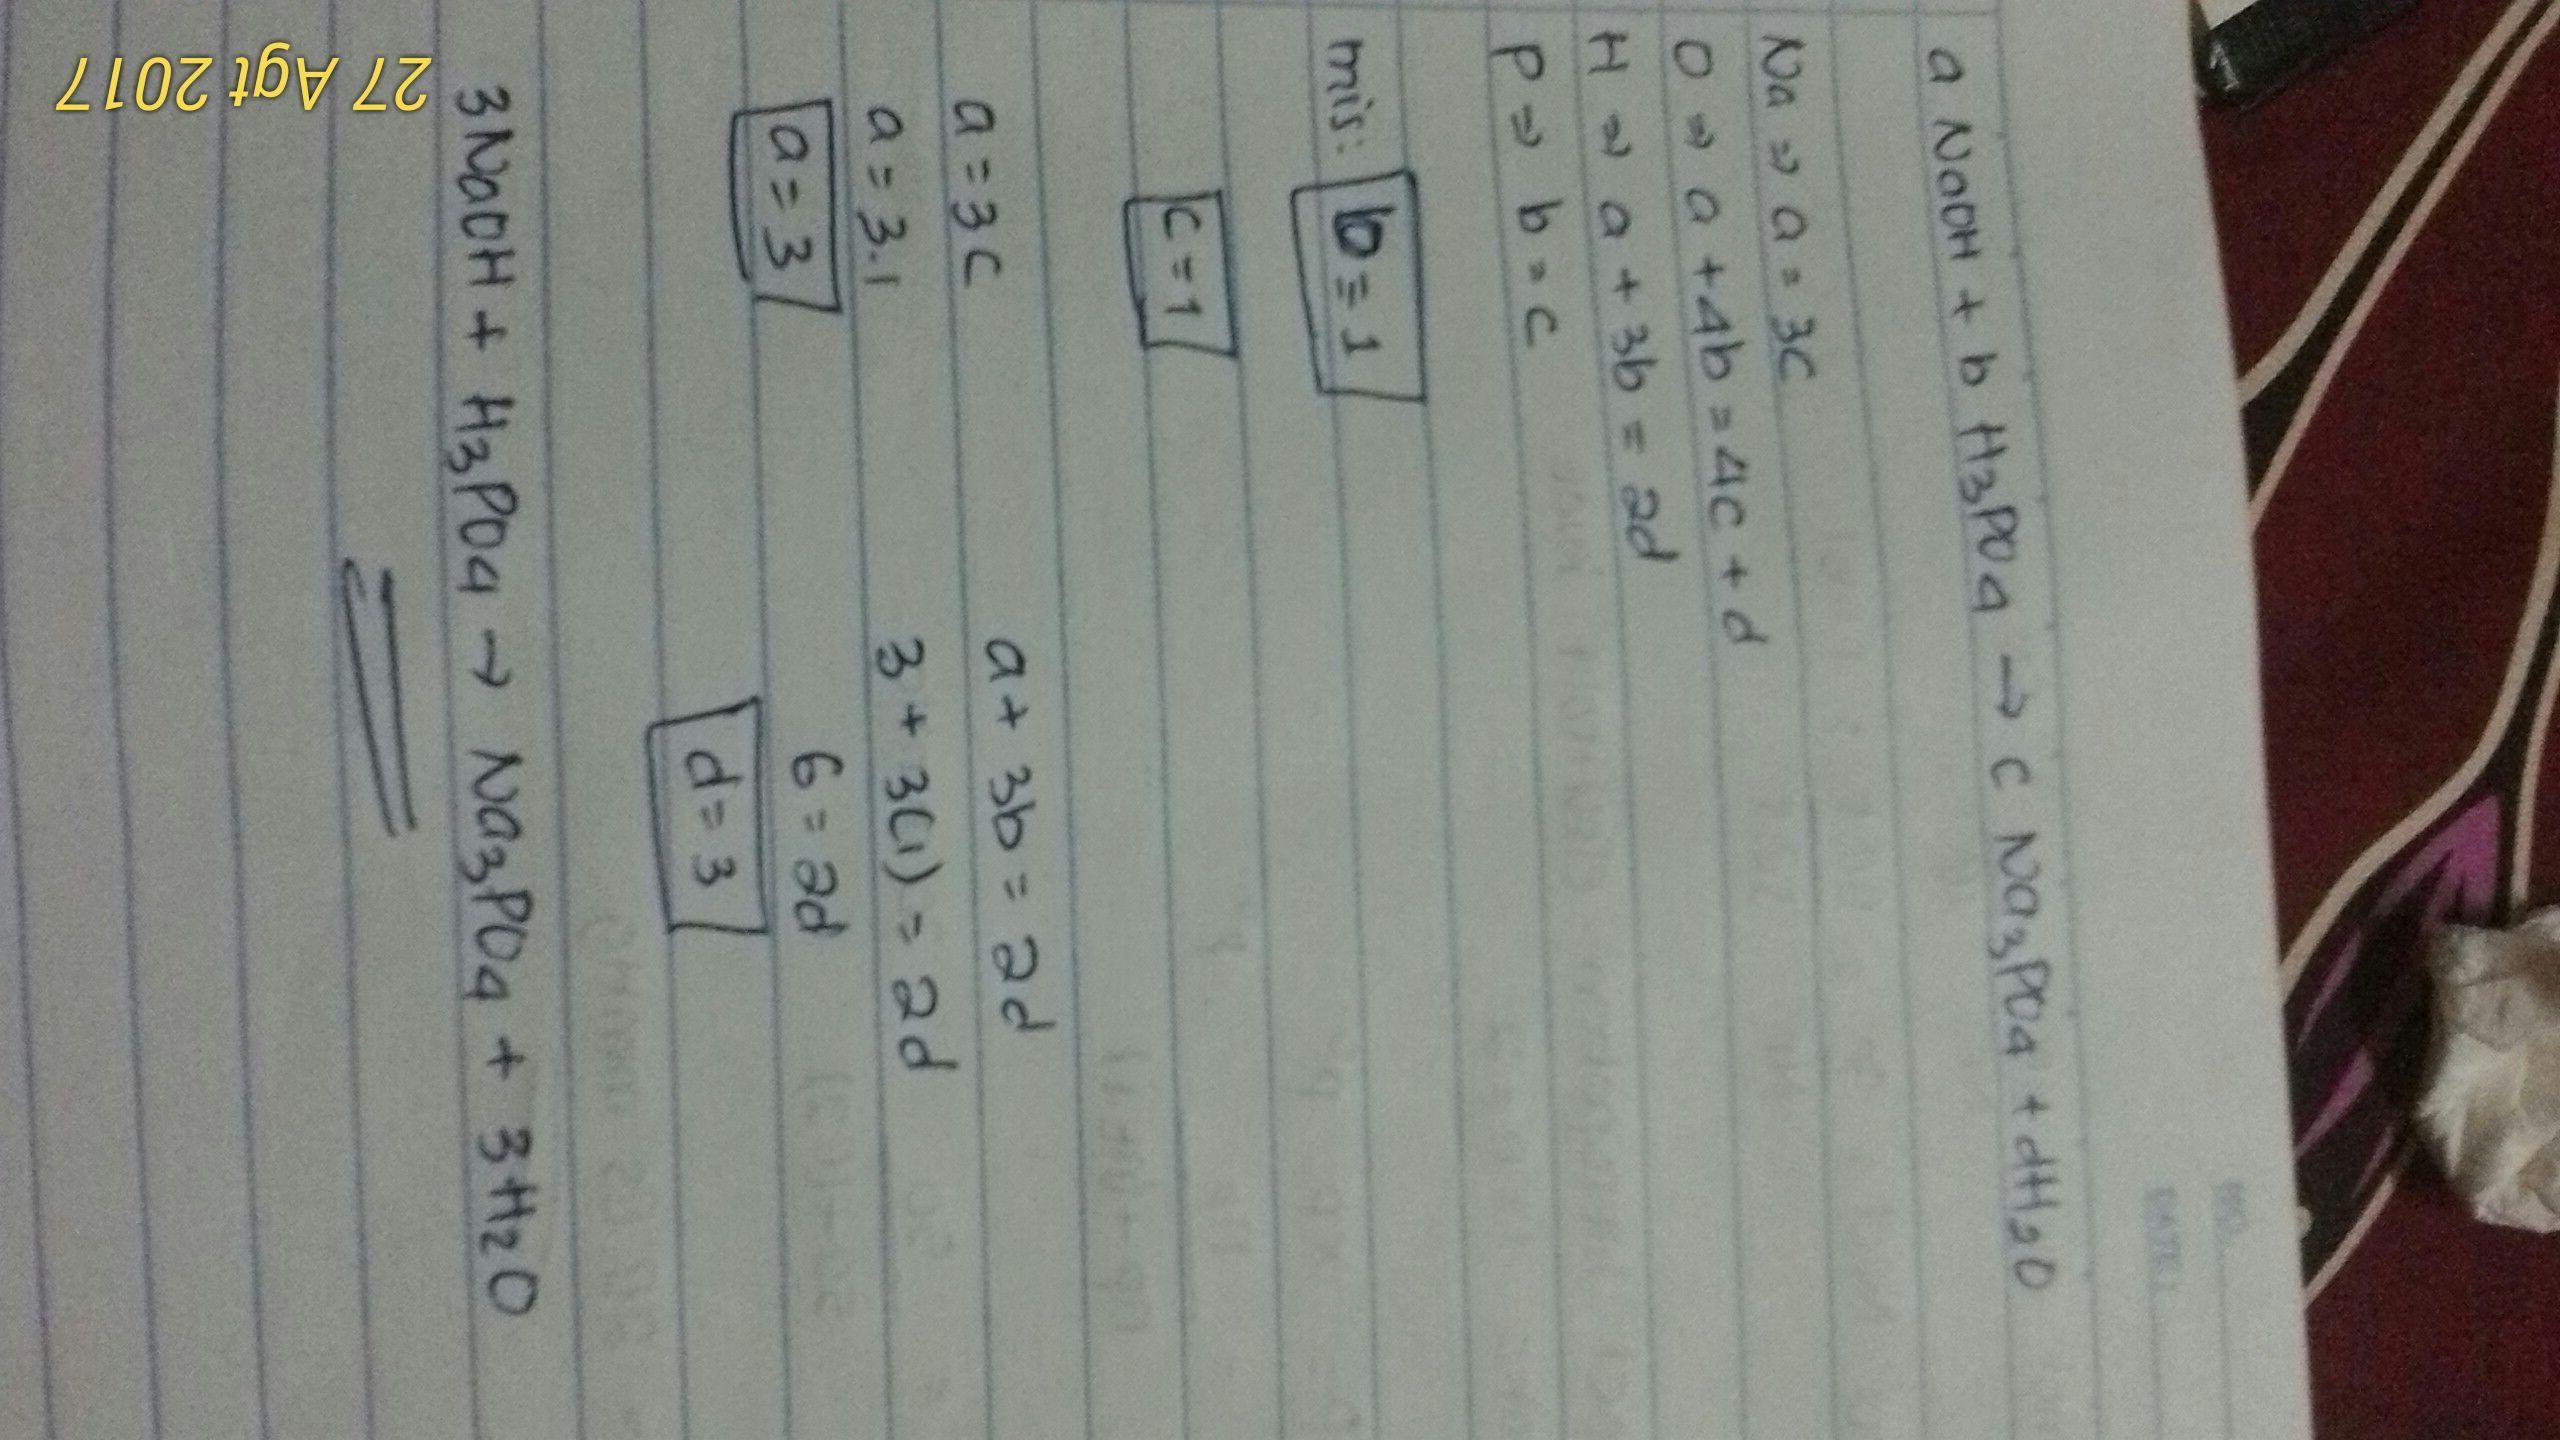 NO.
DATE:
a NaOH + b H₃PO₄ → c Na₃PO₄ + dH₂O
Na ⇒ a = 3c
O ⇒ a + 4b = 4c + d
H ⇒ a + 3b = 2d
P ⇒ b = c
mis: b = 1
c = 1
a = 3c a + 3b = 2d
a = 3.1 3 + 3(1) = 2d
a = 3 6 = 2d
d = 3
3NaOH + H₃PO₄ → Na₃PO₄ + 3H₂O
27 Agt 2017